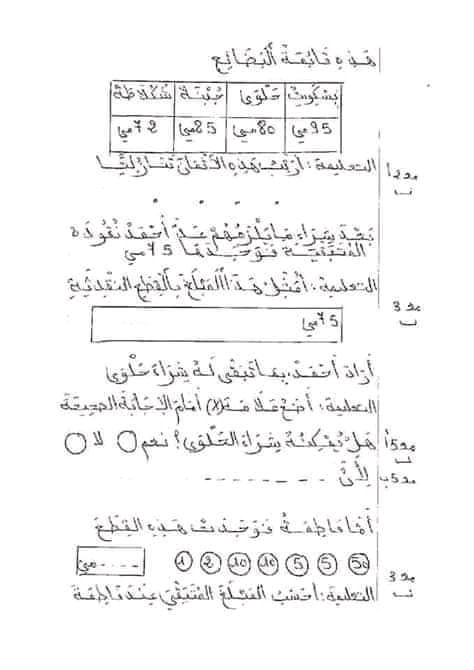 هَذِهِ قَائِمَةُ الْبَضَائِعِ
بَسْكُوِيتٌ حَلْوَى جُبْنَةٌ شُكُلَاطَةٌ
95مي 80مي 85مي 72مي
التعليمة: أُرَتِّبُ هَذِهِ الْأَثْمَانَ تَنَازُلِيًّا
مع2أ
بَعْدَ شِرَاءِ مَا يَلْزَمُهُمْ عَدَّ أَحْمَدُ نُقُودَهُ
الْمُتَبَقِّيَةَ فَوَجَدَهَا 75مي
التعليمة: أُمَثِّلُ هَذَا الْمَبْلَغَ بِالْقِطَعِ النَّقْدِيَّةِ
مع3
75مي
أَرَادَ أَحْمَدُ بِمَا تَبَقَّى لَهُ شِرَاءَ حَلْوَى
التعليمة: أَضَعُ عَلَامَةَ (x) أَمَامَ الْإِجَابَةِ الصَّحِيحَةِ
هَلْ يُمْكِنُهُ شِرَاءُ الْحَلْوَى؟ نعم لا
مع5أ
لِأَنَّ - - - - - - -
مع5ب
أَمَّا فَاطِمَةُ فَوَجَدَتْ هَذِهِ الْقِطَعَ
50 5 5 10 10 2 1 ....مي
التعليمة: أَحْسُبُ الْمَبْلَغَ الْمُتَبَقِّيَ عِنْدَ فَاطِمَةَ
مع3